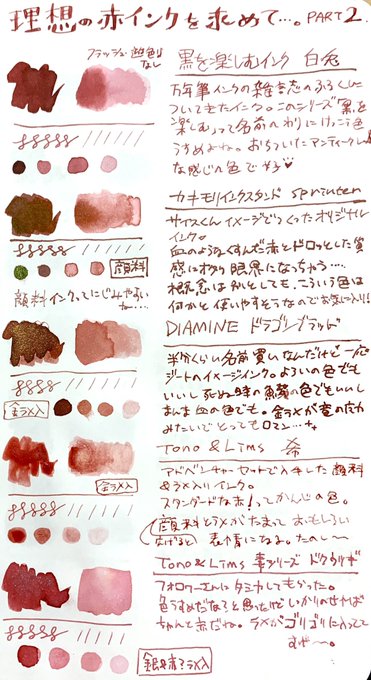 理想の赤インクを求めて…。PART2.
フラッシュ 遊色り
なし
黒を楽しむインク 白兎
万年筆インクの雑誌のふろくに
ついてきたインク。このシリーズ黒を
楽しむって名前のわりにけっこう
うすめよね。おちついたアンティークレッド
な感じの色です♡
カキモリインクスタンド sprinter
サイスくんイメージでつくったオリジナル
インク。
血のようなくすんだ赤とドロッとした質
感にすると限界になっちゃう…。
概念は別としても、こういう色は
何かと使いやすそうなのでお気に入り!
顔料
顔料インクってにじみやすい
なー…。
DIAMINE ドラゴンブラッド
半分くらい名前買いなんだけど一応
ジートのイメージインク。よろいの色でも
いいし死ぬ時の鱗の色でもいいし
まんま血の色でも。金ラメが竜の魔力
みたいでとってもロマン…ち
金ラメ入
Tono & Lims 希
アドベンチャーセットで入手した顔料
&ラメ入りインク。
スタンダードな赤!ってかんじの色。
顔料とラメがたまっておもしろい
表情になるよ。たのし〜
金ラメ入
Tono & Lims 毒シリーズ ドクウツギ
フォロワーさんにタミヤしてもらった。
色うすめだなーと思ったけどしっかりのせれば
ちゃんと赤だね。ラメがゴリゴリに入ってて
すげ〜。
銀&赤ラメ入